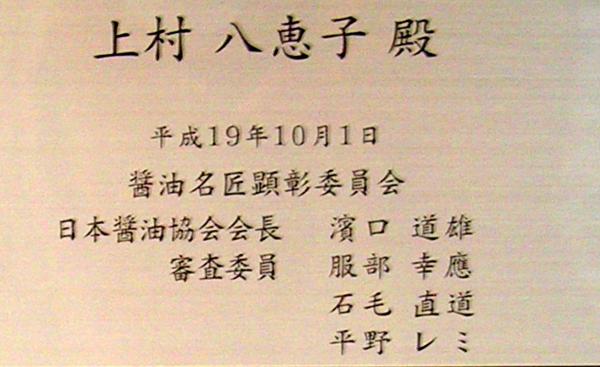 上村 八恵子 殿
平成19年10月1日
醤油名匠顕彰委員会
日本醤油協会会長 濱口 道雄
審査委員 服部 幸應
石毛 直道
平野 レミ